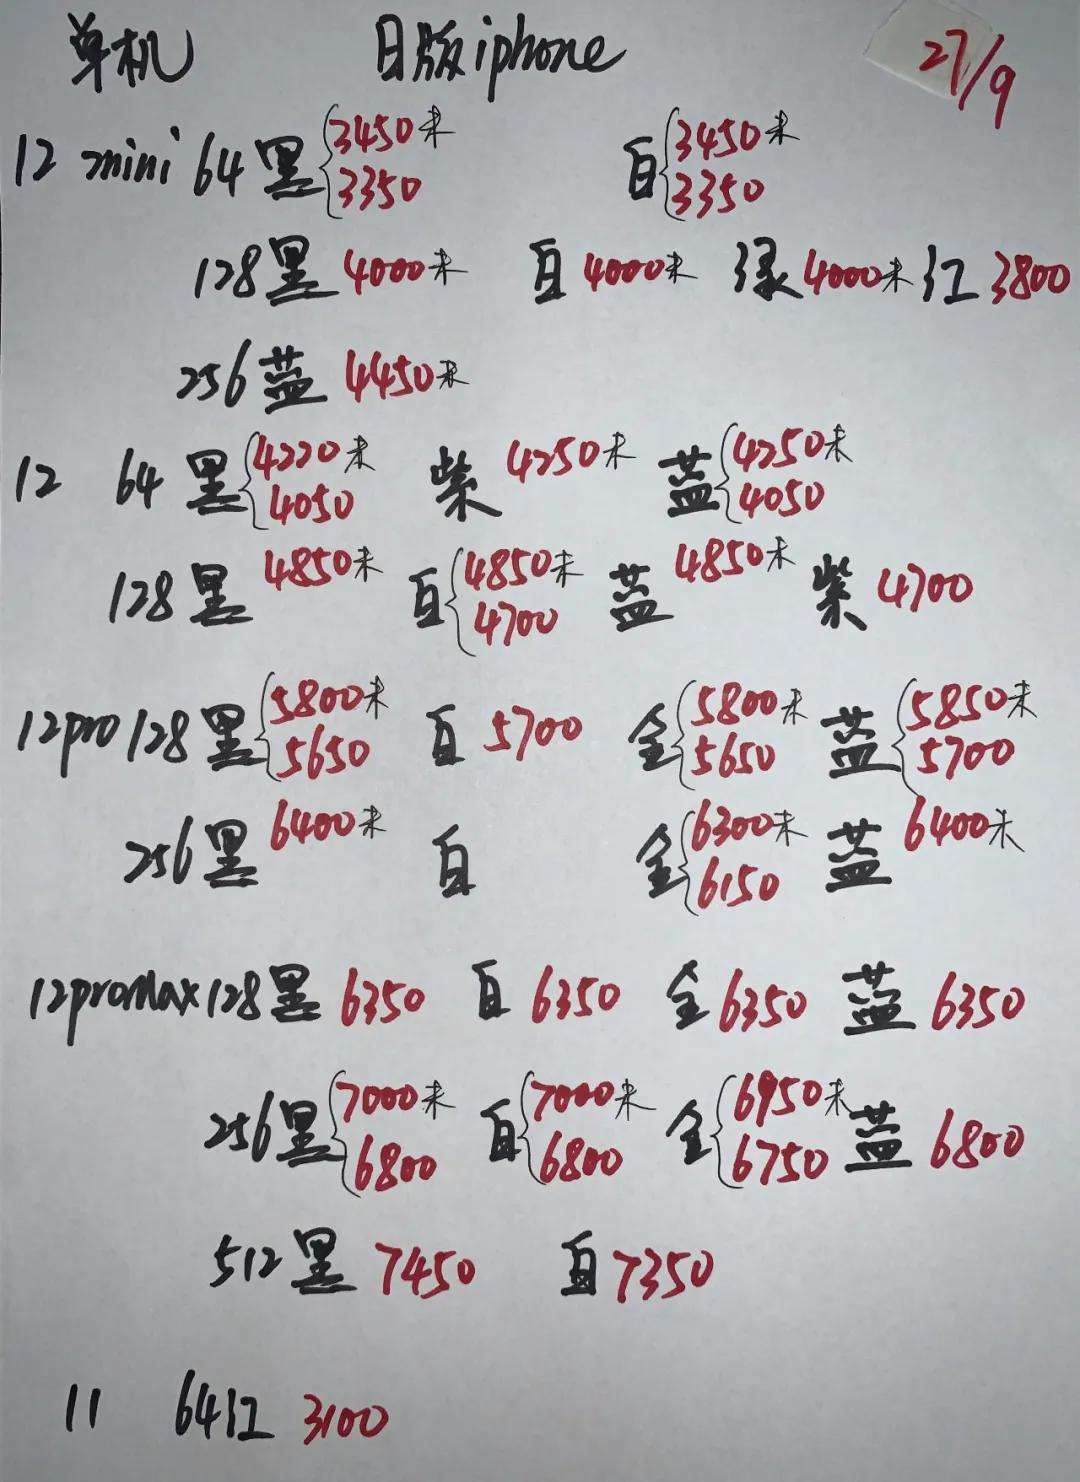 单机 日版iphone 27/9
12 mini 64 黑 {3450未 3350 白 {3450未 3350
128 黑 4000未 白 4000未 绿 4000未 红 3800
256 蓝 4450未
12 64 黑 {4220未 4050 紫 4250未 蓝 {4250未 4050
128 黑 4850未 白 {4850未 4700 蓝 4850未 紫 4700
12pro 128 黑 {5800未 5650 白 5700 金 {5800未 5650 蓝 {5850未 5700
256 黑 6400未 白 金 {6300未 6150 蓝 6400未
12proMax 128 黑 6350 白 6350 金 6350 蓝 6350
256 黑 {7000未 6800 白 {7000未 6800 金 {6950未 6750 蓝 6800
512 黑 7450 白 7350
11 64 红 3100